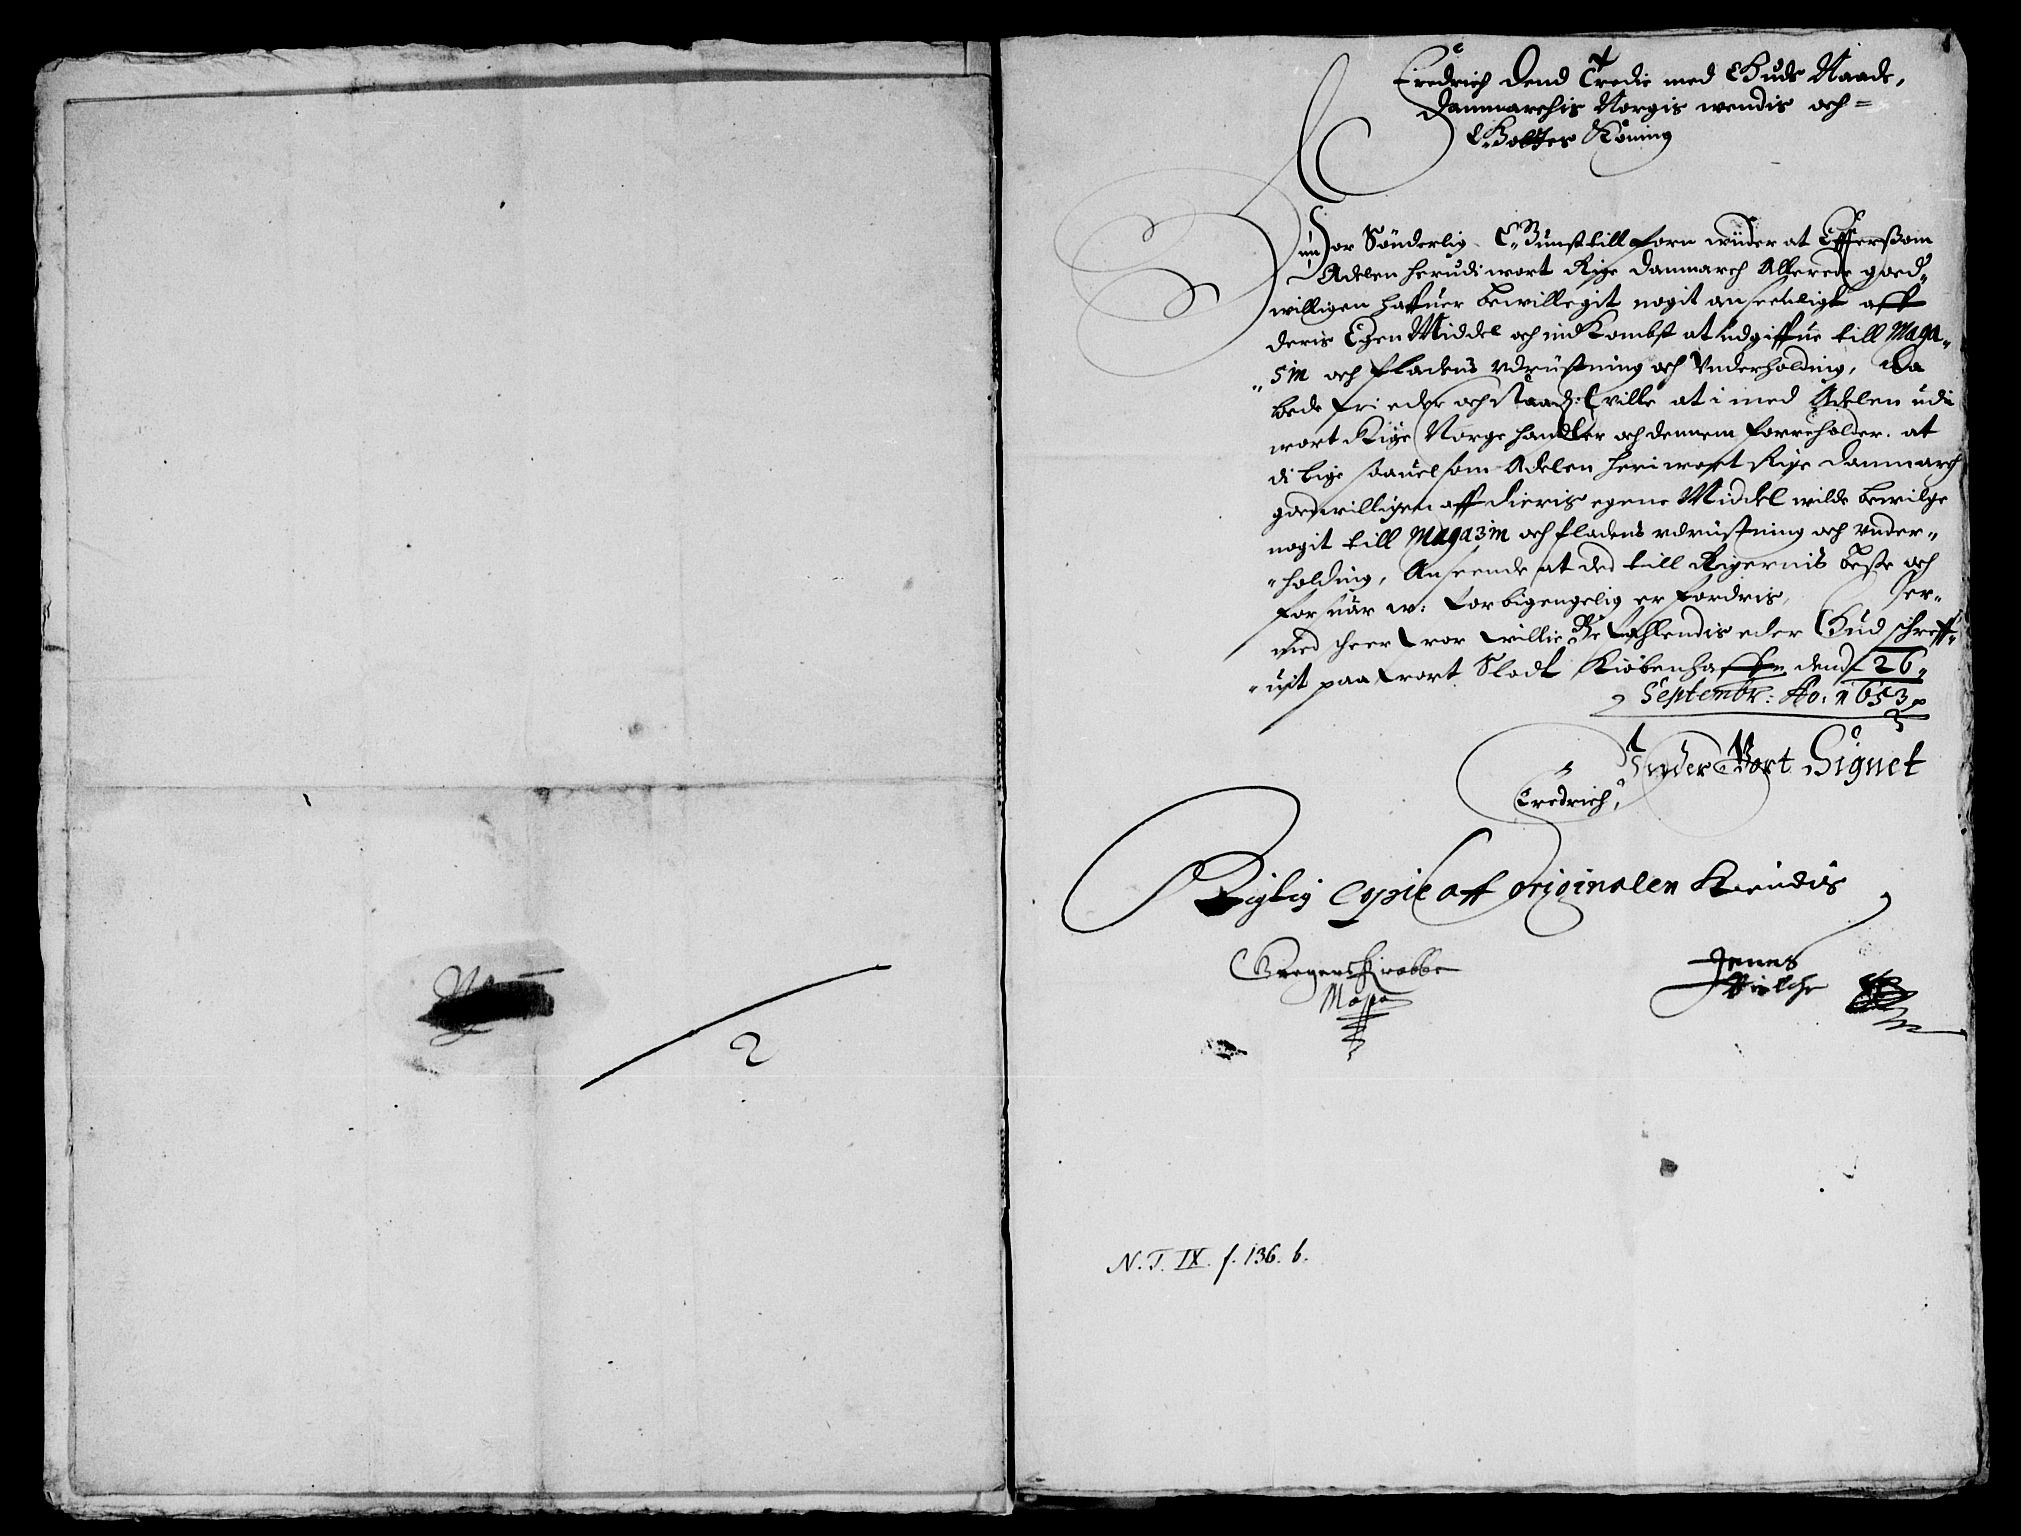 2
Friedrich Dend Tredie med Guds Naade,
Danmarchis Norgis Wendis och =
Gottes Koning
Vor Sönderlig Gunst till forn wider at Effterssom
Adelen herudi wort Rige Danmarch Allerede goed„
willigen haffuer bewillegit nogit anseenligt aff
deris Egen Middel och indKombst at udgiffue till Maga„
„zin och fladens udrüstning och Underholding, Da
bede fri eder och Naad: wille at i med Adelen udi
wort Rige Norge handler och dennem forreholder. at
di lige saauelsom Adelen heri wort Rige Danmarch
goedwilligen aff dieris egene Middel wilde bewilge
nogit till Magazin och fladens udrustning och under„
„holding, Anseende at ded till Rigernis beste och
forsuar w: forbigengelig er fordris, Der„
med scheer wor willie Befahlendis eder Gud schreff„
„uit paa wort Slodt Kiøbenhaffn dend 26„
Septembr: Ao: 1653
Under Vort Signet
Fredrich,
Rigtig Copie aff originalen Kiendis
Gregers Krabbe
Mppa
Jenns
Bielche
N. T. IX. f. 136. b.